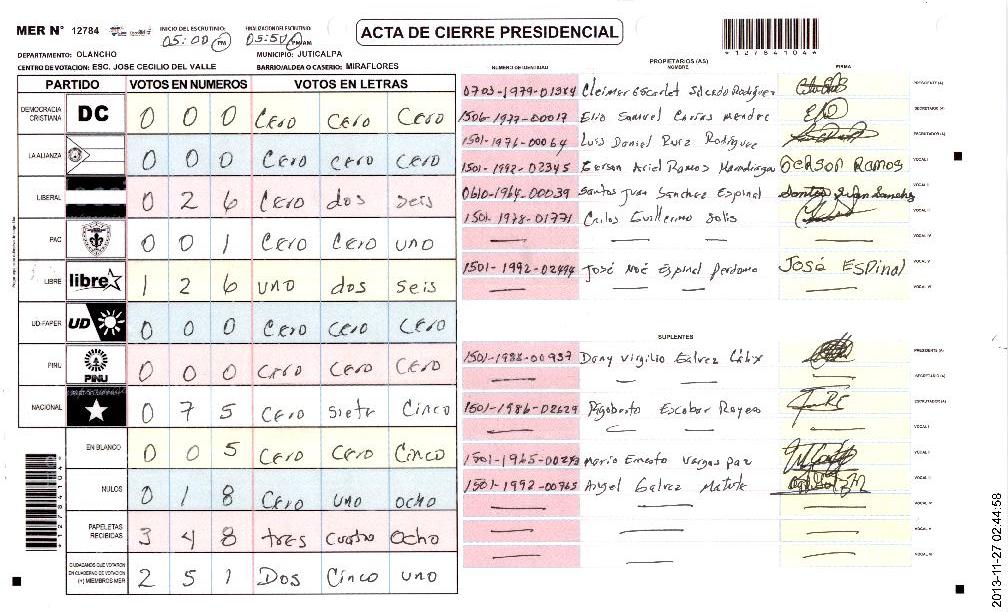 MER N° 12784
INICIO DEL ESCRUTINIO: 05:00 PM
FINALIZACION DEL ESCRUTINIO: 05:50 PM AM
ACTA DE CIERRE PRESIDENCIAL
*12784104*
DEPARTAMENTO: OLANCHO
MUNICIPIO: JUTICALPA
CENTRO DE VOTACION: ESC. JOSE CECILIO DEL VALLE
BARRIO/ALDEA O CASERIO: MIRAFLORES
PARTIDO VOTOS EN NUMEROS VOTOS EN LETRAS
DEMOCRACIA CRISTIANA DC 0 0 0 Cero Cero Cero
LA ALIANZA 0 0 0 Cero cero cero
LIBERAL 0 2 6 Cero dos seis
PAC 0 0 1 Cero Cero uno
LIBRE libre 1 2 6 uno dos seis
UD-FAPER UD 0 0 0 Cero cero Cero
PINU PINU 0 0 0 Cero Cero Cero
NACIONAL 0 7 5 Cero siete Cinco
EN BLANCO 0 0 5 Cero Cero Cinco
NULOS 0 1 8 Cero uno ocho
PAPELETAS RECIBIDAS 3 4 8 tres cuatro ocho
CIUDADANOS QUE VOTARON EN CUADERNO DE VOTACION (+) MIEMBROS MER 2 5 1 Dos Cinco uno
*12784104*
PROPIETARIOS (AS)
NUMERO DE IDENTIDAD NOMBRE FIRMA
0703-1979-01384 Cleimer Escarlet Salcedo Rodriguez PRESIDENTE (A)
1506-1977-00017 Elio Samuel Carias Mendez SECRETARIO (A)
1501-1976-00064 Luis Daniel Ruiz Rodriguez ESCRUTADOR (A)
1501-1992-02345 Gerson Ariel Ramos Gerson Ramos VOCAL I
0610-1964-00039 Santos Juan Sanchez Espinal Santos Juan Sanchez VOCAL II
1501-1978-01771 Carlos Guillermo Solis VOCAL III
VOCAL IV
1501-1992-02494 José Noé Espinal Perdomo José Espinal VOCAL V
VOCAL VI
SUPLENTES
1501-1988-00937 Dony Virgilio Galvez PRESIDENTE (A)
SECRETARIO (A)
1501-1986-02629 Rigoberto Escobar ESCRUTADOR (A)
VOCAL I
1501-1965-00293 Mario Ernesto Vargas Paz VOCAL II
1501-1992-00765 Angel Galvez Matute VOCAL III
VOCAL IV
VOCAL V
VOCAL VI
2013-11-27 02:44:58